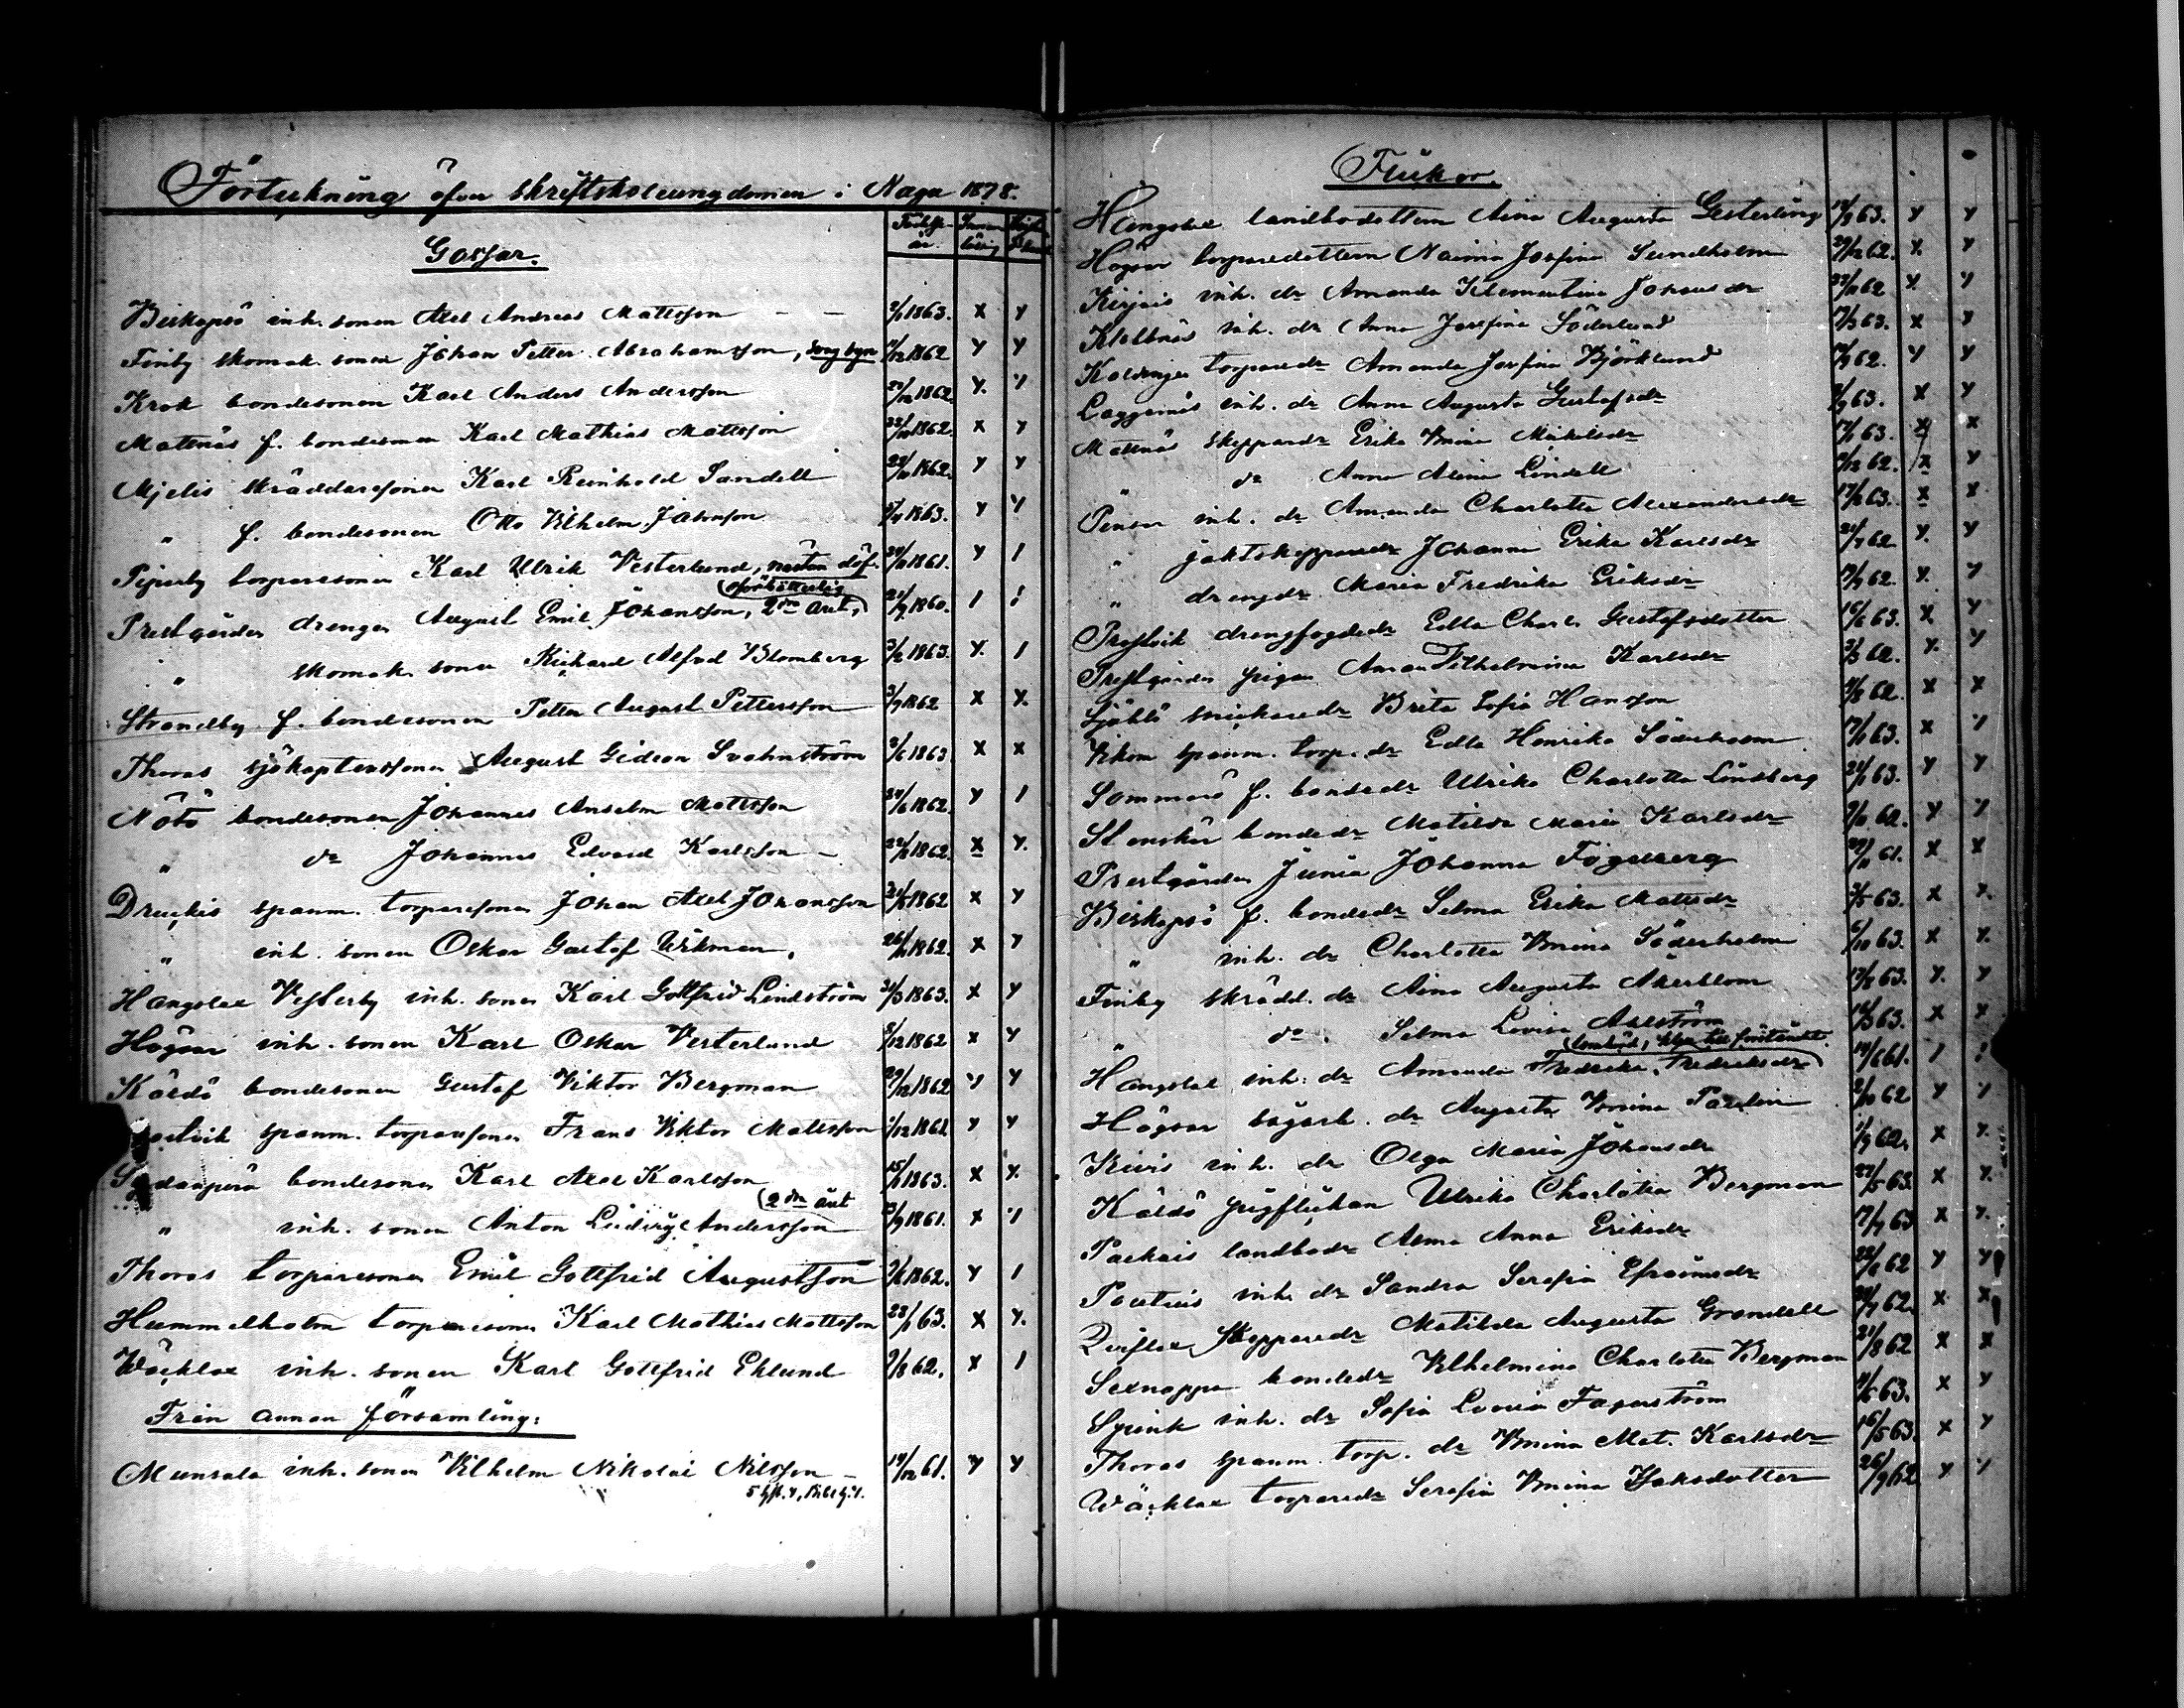 Förtekning öfver skriftskoleungdomen i Nagu 1878.
Gossar.
Födelseår
Biskopsö inh. sonen Axel Andreas Mattsson – – 2/1 1863. x y
Finby skomak. sonen Johan Petter Abrahamsson, svag syn 11/12 1862 y y
Krok bondesonen Karl Anders Andersson 27/12 1862. y. y
Mattnäs f. bondesonen Karl Mathias Mattsson 22/10 1862. x y
Mjelis skräddaresonen Karl Reinhold Sandell 22/11 1862. y y
" f. bondesonen Otto Vilhelm Johansson 1863. y y
Pijparby torparesonen Karl Ulrik Vesterlund, nästan döf. 1861. y /
Prestgården drengen August Emil Johansson, 2dra året, 21/9 1860. / :
" skomak. sonen Richard Alfred Blomberg 3/2 1863. y. /
Strandby f. bondesonen Petter August Pettersson 3/9 1862 x x.
Thoras sjökaptenssonen August Gideon Svahnström 3/6 1863 x x
Nötö bondesonen Johannes Anselm Mattsson 1862. y /
" do Johannes Edvard Karlsson – 22/8 1862. x y.
Druckis spanm. torparesonen Johan Axel Johansson 1862 x y
" inh. sonen Oskar Gustaf Wikman. 26/ 1862. x y
Hangslax Vesterby inh. sonen Karl Gottfrid Lindström 31/3 1863. x y
Högsar inh. sonen Karl Oskar Vesterlund 5/12 1862 x y
Käldö bondesonen Gustaf Viktor Bergman 29/12 1862 y y
spanm. torparesonen Frans Viktor Mattsson 1/12 1862 y y
bondesonen Karl Axel Karlsson 15/ 1863. x x.
2dra året
" inh. sonen Anton Ludvig Andersson 1861. x y
Thoras torparesonen Emil Gottfrid Augustsson 1862. y /
Hummelholm torparesonen Karl Mathias Mattsson 23/1 63. x y.
Wäcklax inh. sonen Karl Gottfrid Eklund 9/8 62. x /
Från annan församling:
Munsala inh. sonen Vilhelm Nikolai Nilsson – 14/12 61. y y
Flickor.
Hangslax landbodottern Aina Augusta Gesterling 63. y y
Högsar torparedottern Naima Josefina Sundholm 29/12 62. x. y
Kirjais inh. dr Amanda Klementina Johansdr 62 y y
Klobbnäs inh. dr Anna Josefina Söderlund 17/3 63. x y
Koldinge torparedr Amanda Josefina Björklund 62. y y
Laggarnäs inh. dr Anna Augusta Gustafsdr 63. x y
Mattnäs skeppardr Erika Vmina Mikelsdr 17/1 63. x x
" dr Anna Alina Lindell 62. x y
Pensar inh. dr Amanda Charlotta Alexandersdr 63. x x
" jaktskeppardr Johanna Erika Karlsdr 21/7 62 y. y
" drengdr Maria Fredrika Eriksdr 62. y. y
Prestvik drengfogdedr Edla Charl. Gustafsdotter 16/6 63. x y
Prestgården pigan Amanda Vilhelmina Karlsdr 3/3 62. y. y
Sjöblö snickaredr Brita Sofia Hansson 62. x x
Vikom spanm. torp. dr Edla Henrika Söderholm 17/1 63. x y
Sommarö f. bondedr Ulrika Charlotta Lindberg 24/1 63. y y
Stenskär bondedr Matilda Maria Karlsdr 62. y y
Prestgården Junia Johanna Fogelberg 61. x x
Biskopsö f. bondedr Selma Erika Mattsdr 3/5 63. x y.
" inh. dr Charlotta Vmina Söderholm 6/10 63. x y.
Finby skrädd. dr Aina Augusta Åkerblom 63. y. y
" do. Selma Lovisa Ahlström 63. x x
Hangslax inh. dr Amanda Fredrika Fredriksdr 61. / :
Högsar sågarb. dr Augusta Vmina Paulin 2/10 62 y y
Kivis inh. dr Olga Maria Johansdr 1/9 62. x y.
Käldö pigflickan Ulrika Charlotta Bergman 27/5 63. x y.
Parkais landbodr Alma Anna Eriksdr 17/7 63 x y.
inh. dr Sandra Serafia Efraimsdr 22/6 62 y y
skeppardr Matilda Augusta Grandell 62. x x
Sexnappa bondedr Vilhelmina Charlotta Bergman 21/8 62 x x
inh. dr Sofia Lovisa Fagerström 63. x y
Thoras spanm. torp. dr Vmina Mat. Karlsdr 16/5 63. x y
Wäcklax torparedr Serafia Vmina Isaksdotter 26/9 62 y y